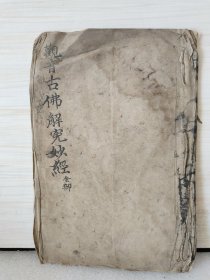 觀音古佛解冤妙經全部